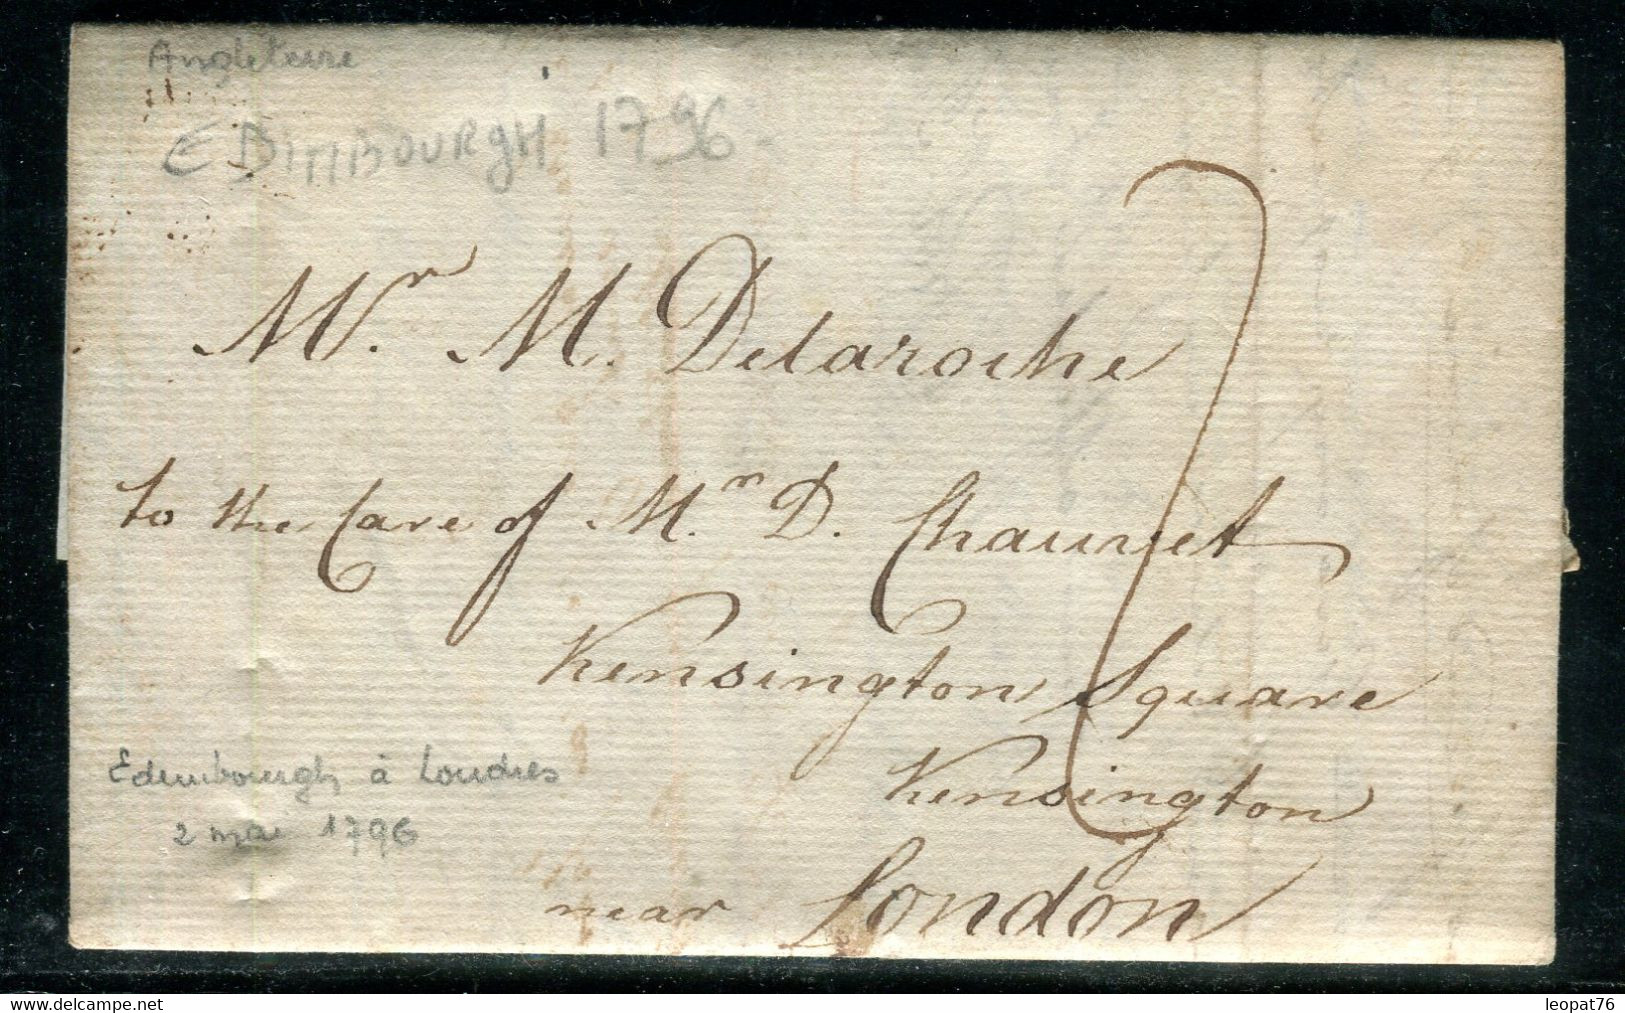 Angleterre
EDIMBOURGH 1796
Mr. M. Delaroche
to the Care of Mr. D. Chauvet
Kensington Square
Kensington
near London
Edimbourgh à Londres
2 mai 1796
www.delcampe.net
leopat76